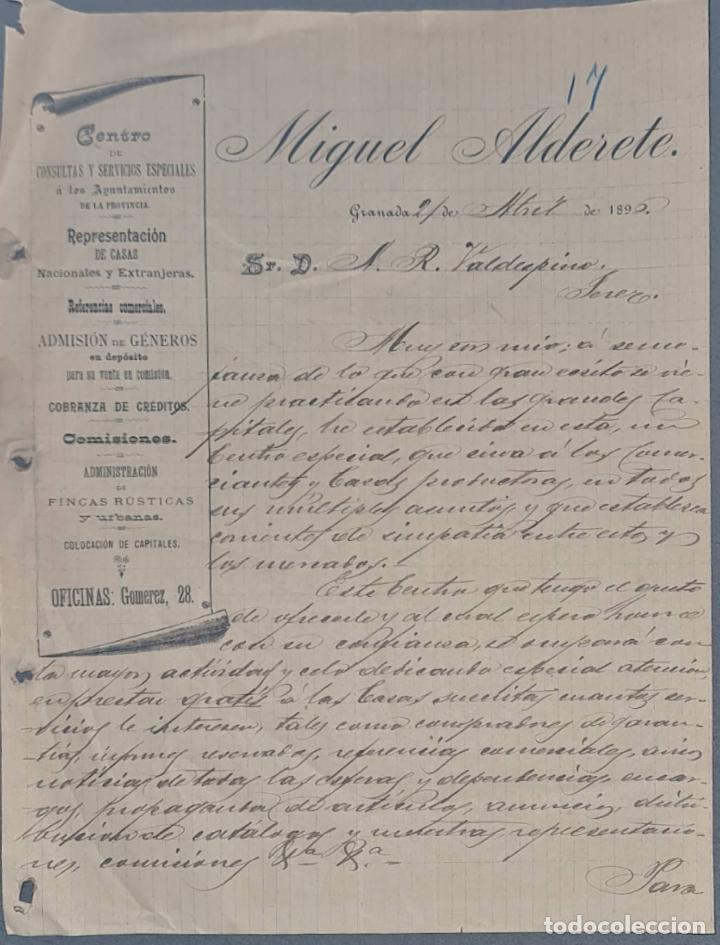 17
Miguel Alderete.
Granada 21 de Abril de 1896.
Sr. D. A. R. Valdespino.
Jerez.
Centro
DE
CONSULTAS Y SERVICIOS ESPECIALES
á los Ayuntamientos
DE LA PROVINCIA.
Representación
DE CASAS
Nacionales y Extranjeras.
Referencias comerciales.
ADMISIÓN DE GÉNEROS
en depósito
para su venta en comisión.
COBRANZA DE CRÉDITOS.
Comisiones.
ADMINISTRACIÓN
DE
FINCAS RÚSTICAS
y urbanas.
COLOCACIÓN DE CAPITALES.
OFICINAS: Gomerez, 28.
Muy sor mio; á seme-
janza de lo que con gran exsito se vie-
ne practicando en las grandes Ca-
pitales, he establecido en esta, un
Centro especial, que sirva á los Comer-
ciantes y Casas productoras, en todos
sus múltiples asuntos, y que establezca
corrientes de simpatía entre estos y
los mercados.
Este Centro que tengo el gusto
de ofrecerle y al cual espero honre
con su confianza, se ocupará con
la mayor actividad y celo dedicando especial atención,
en prestar gratis á las Casas suscritas cuantos ser-
vicios le interesen, tales como compradores de garan-
tías, informes reservados, referencias comerciales,
noticias de todas las esferas y dependencias, encar-
gos, propaganda de artículos, anuncios, distri-
bucion de catálogos y muestras, representacio-
nes, comisiones &a &a.=
Para
todocoleccion.net